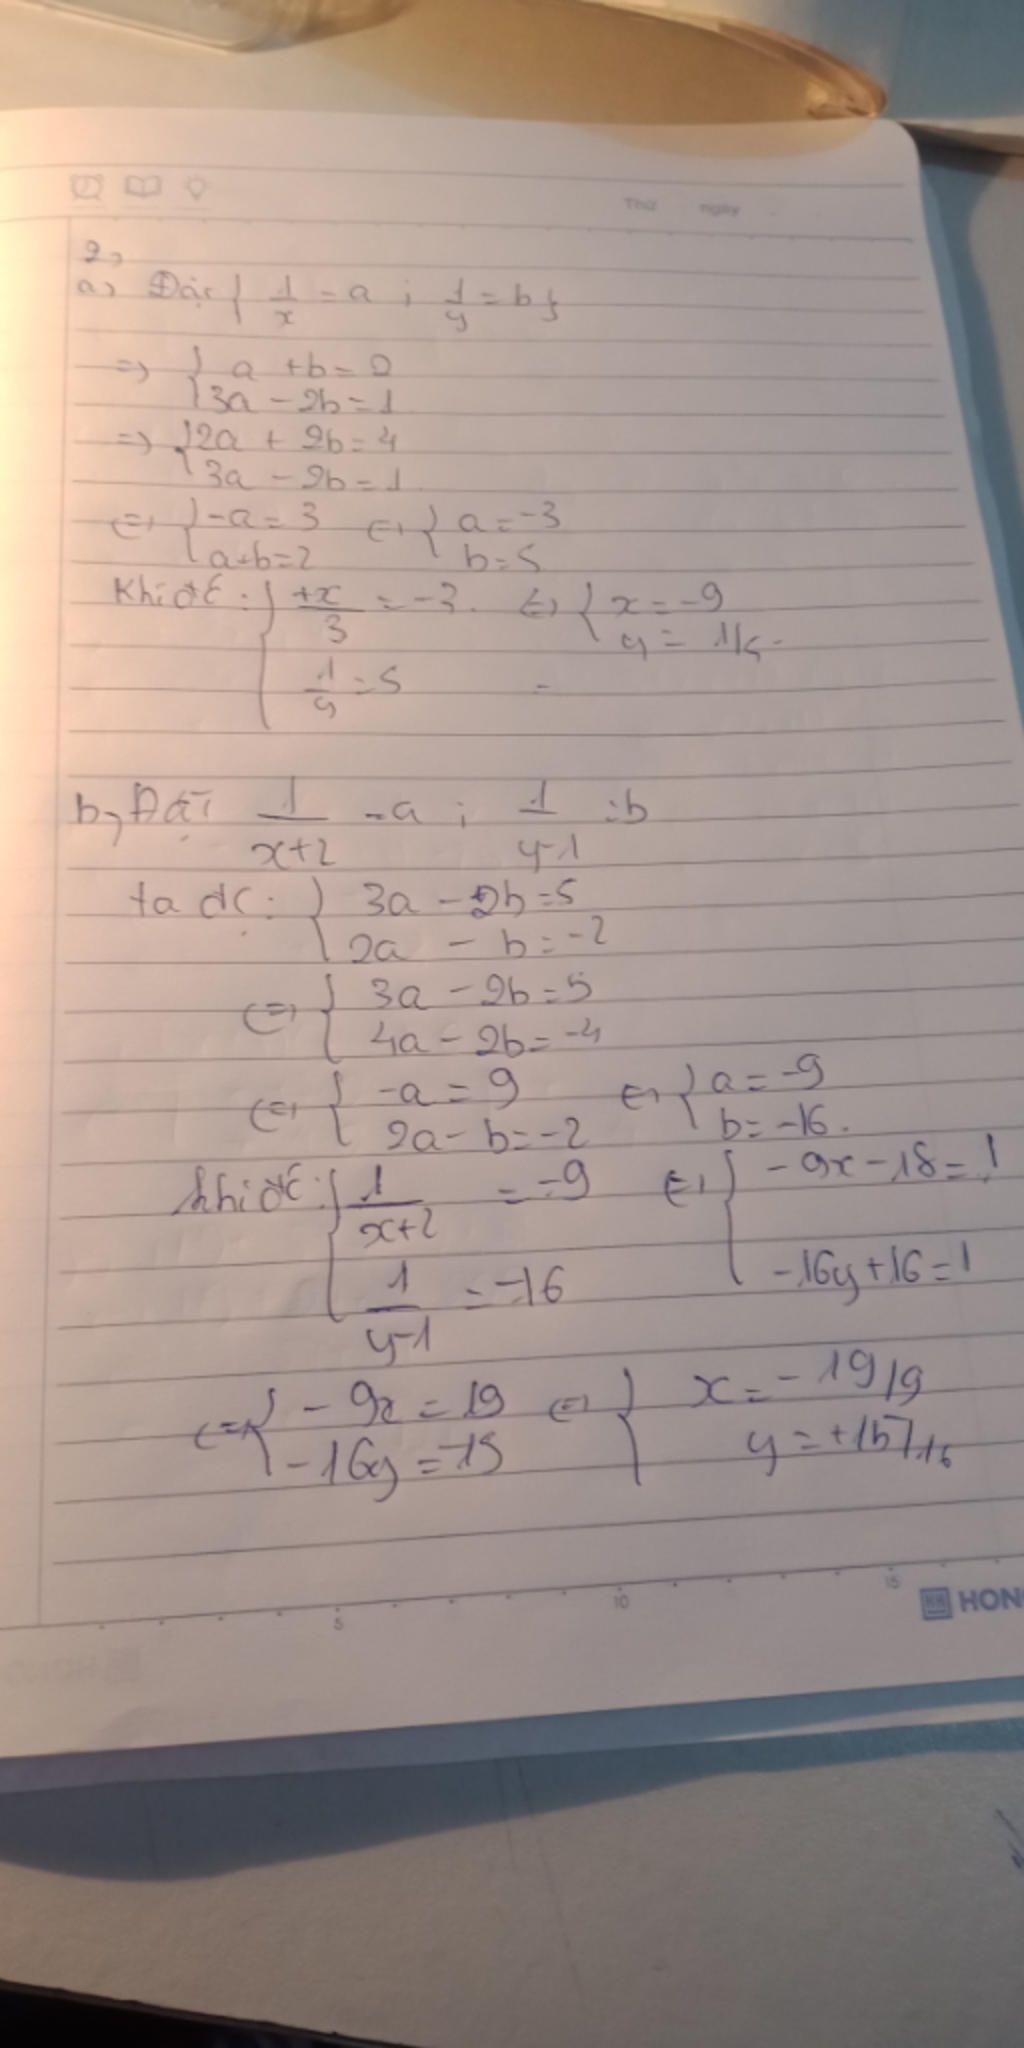 Thứ ngày
2,
a, Đặt { 1/x = a ; 1/y = b }
=> { a + b = 2
3a - 2b = 1
=> { 2a + 2b = 4
3a - 2b = 1
<=> { -a = 3 <=> { a = -3
a+b=2 b=5
Khi đó : { +x/3 = -3. <=> { x = -9
y = 1/5.
1/y = 5
b, Đặt 1/x+2 = a ; 1/y-1 = b
ta đc: { 3a - 2b = 5
2a - b = -2
<=> { 3a - 2b = 5
4a - 2b = -4
<=> { -a = 9 <=> { a = -9
2a - b = -2 b = -16.
khi đó: { 1/x+2 = -9 <=> { -9x - 18 = 1
1/y-1 = -16 -16y + 16 = 1
<=> { -9x = 19 <=> { x = -19/9
-16y = -15 y = +15/16
5 10 15
HON